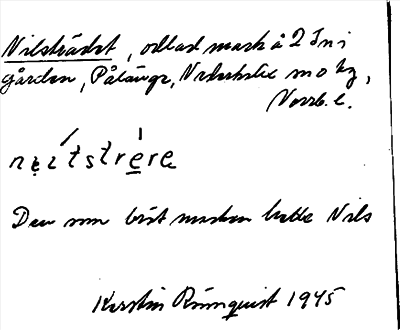 Nilsträdet, odlad mark å 2 Ini
gården, Pålänge, Nederkalix sn o hg,
Norrb. l.
Den som bröt marken hette Nils
Kerstin Rönnquist 1945